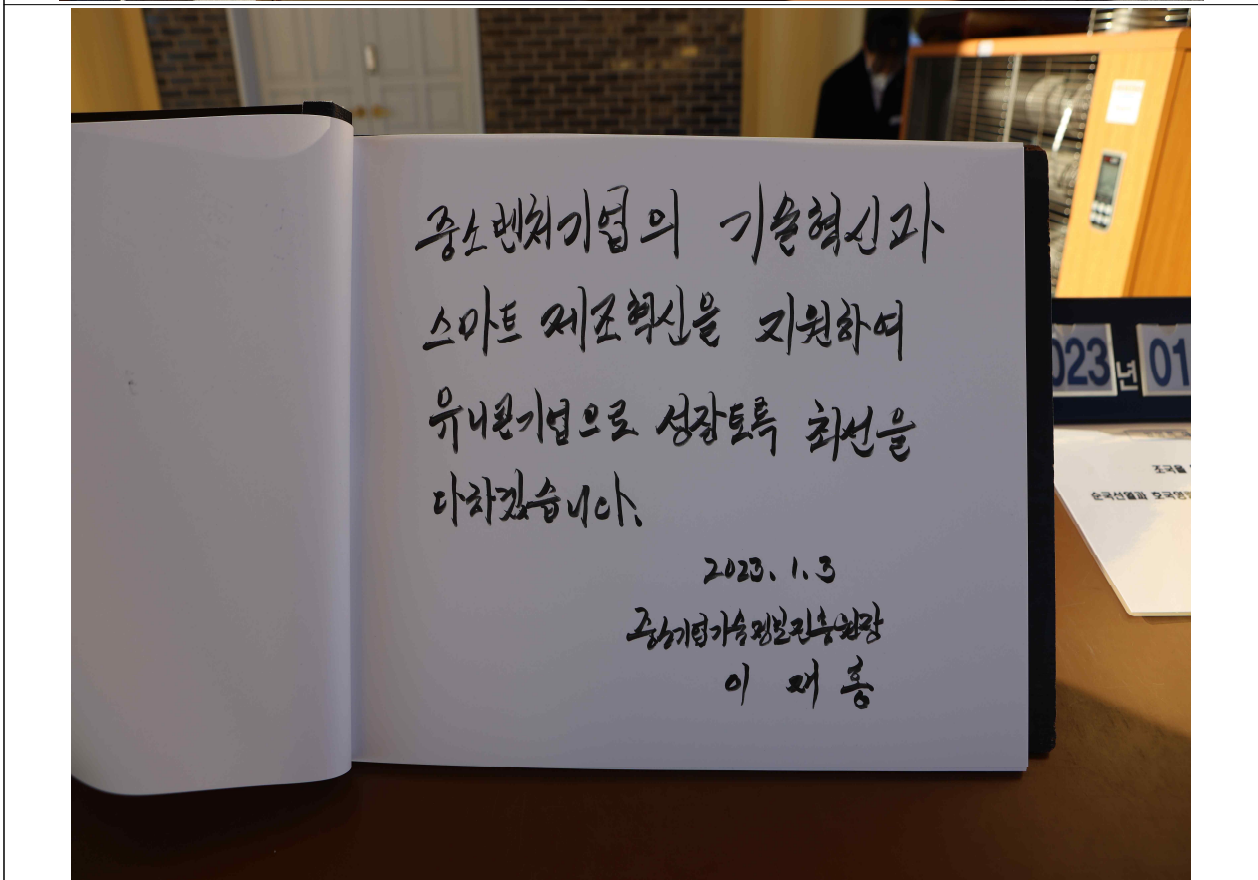 중소벤처기업의 기술혁신과
스마트 제조혁신을 지원하여
유니콘기업으로 성장토록 최선을
다하겠습니다.
2023. 1. 3
중소기업기술정보진흥원장
이 재 홍
023년 01
조국을
순국선열과 호국영